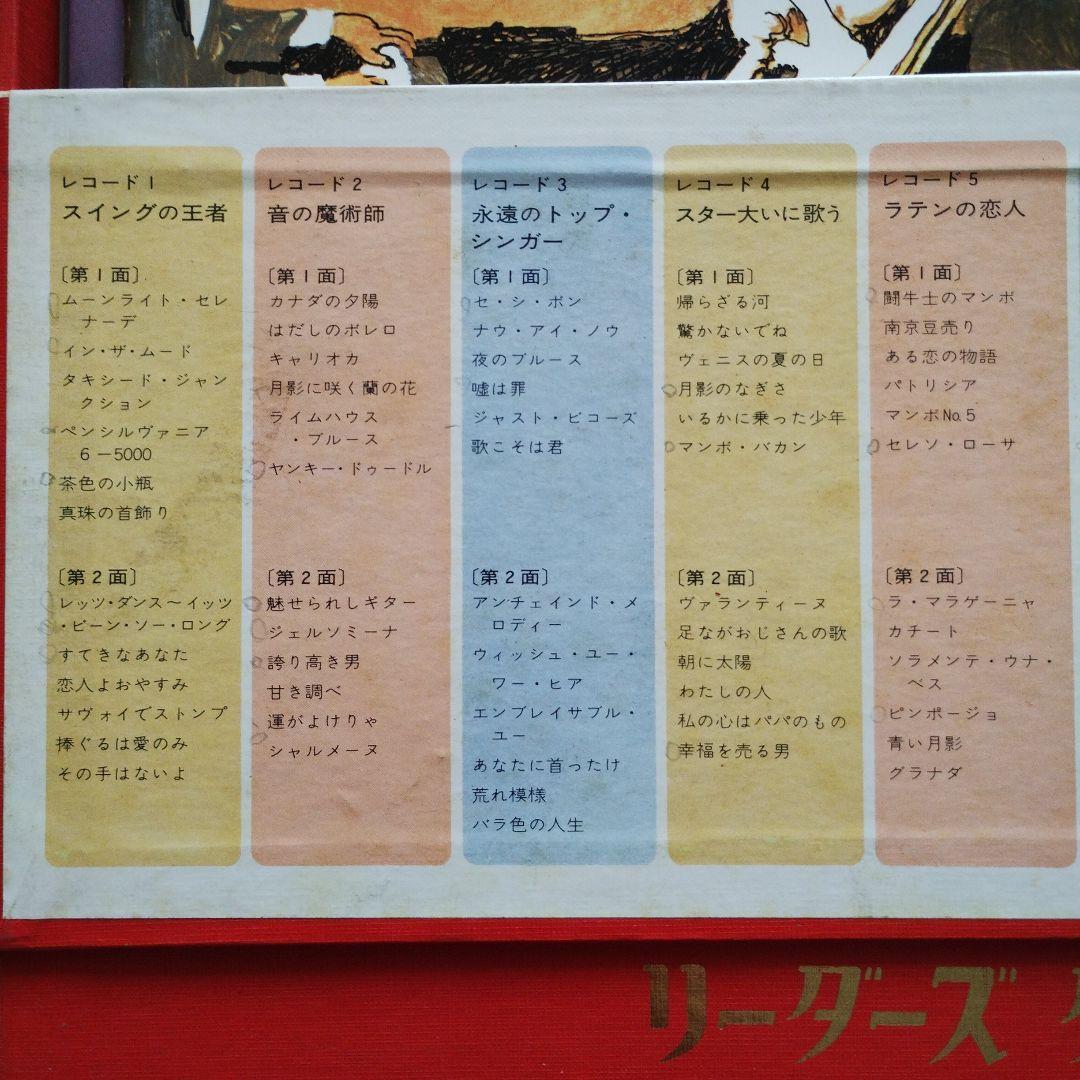 レコード1
スイングの王者
〔第1面〕
ムーンライト・セレ
ナーデ
イン・ザ・ムード
タキシード・ジャン
クション
ペンシルヴァニア
6－5000
茶色の小瓶
真珠の首飾り
〔第2面〕
レッツ・ダンス～イッツ
・ビーン・ソー・ロング
すてきなあなた
恋人よおやすみ
サヴォイでストンプ
捧ぐるは愛のみ
その手はないよ
レコード2
音の魔術師
〔第1面〕
カナダの夕陽
はだしのボレロ
キャリオカ
月影に咲く蘭の花
ライムハウス
・ブルース
ヤンキー・ドゥードル
〔第2面〕
魅せられしギター
ジェルソミーナ
誇り高き男
甘き調べ
運がよけりゃ
シャルメーヌ
レコード3
永遠のトップ・
シンガー
〔第1面〕
セ・シ・ボン
ナウ・アイ・ノウ
夜のブルース
嘘は罪
ジャスト・ビコーズ
歌こそは君
〔第2面〕
アンチェインド・メ
ロディー
ウィッシュ・ユー・
ワー・ヒア
エンブレイサブル・
ユー
あなたに首ったけ
荒れ模様
バラ色の人生
レコード4
スター大いに歌う
〔第1面〕
帰らざる河
驚かないでね
ヴェニスの夏の日
月影のなぎさ
いるかに乗った少年
マンボ・バカン
〔第2面〕
ヴァランティーヌ
足ながおじさんの歌
朝に太陽
わたしの人
私の心はパパのもの
幸福を売る男
レコード5
ラテンの恋人
〔第1面〕
闘牛士のマンボ
南京豆売り
ある恋の物語
パトリシア
マンボNo.5
セレソ・ローサ
〔第2面〕
ラ・マラゲーニャ
カチート
ソラメンテ・ウナ・
ベス
ピンポージョ
青い月影
グラナダ
リーダーズ